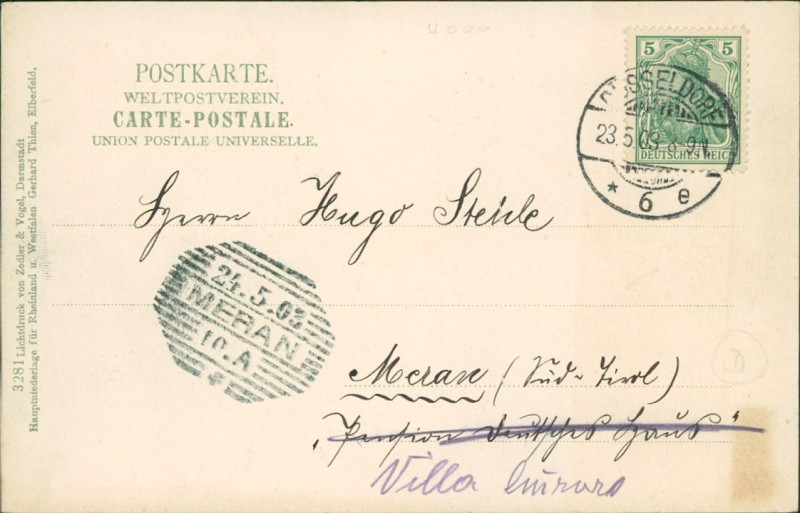 POSTKARTE.
WELTPOSTVEREIN.
CARTE-POSTALE.
UNION POSTALE UNIVERSELLE.
5 5
DEUTSCHES REICH
DÜSSELDORF
23.5.03
* 6 e
Herrn Hugo Steide
24.5.03
MERAN
10.A
Meran (Süd-Tirol)
"Pension Deutsches Haus"
Villa
3281 Lichtdruck von Zedler & Vogel, Darmstadt
Hauptniederlage für Rheinland u. Westfalen Gerhard Thien, Elberfeld.
D